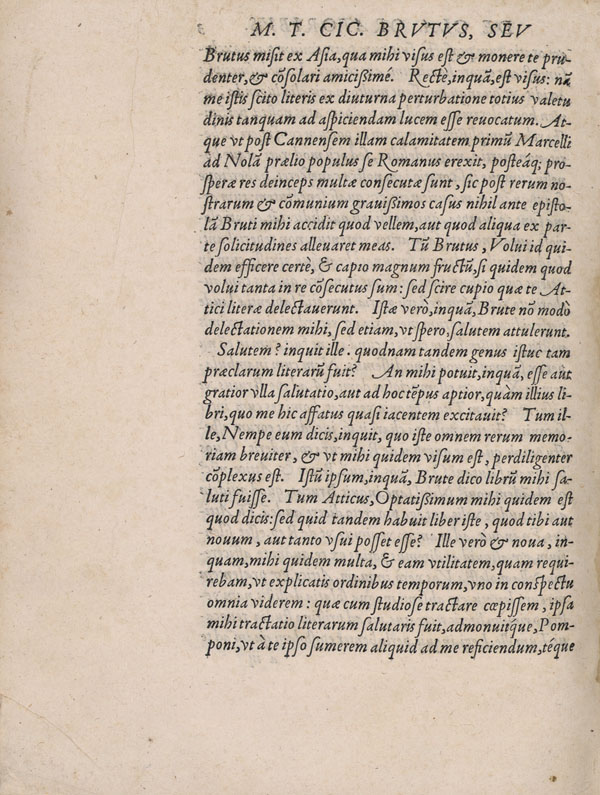 M. T. CIC. BRVTVS, SEV
Brutus misit ex Asia, qua mihi visus est & monere te pru-
denter, & cōsolari amicißimé. Rectè, inquā, est visus: nā
me istis scito literis ex diuturna perturbatione totius valetu
dinis tanquam ad aspiciendam lucem esse reuocatum. At-
que vt post Cannensem illam calamitatem primū Marcelli
ad Nolā prælio populus se Romanus erexit, posteáq; pro-
speræ res deinceps multæ consecutæ sunt, sic post rerum no-
strarum & cōmunium grauißimos casus nihil ante episto-
lā Bruti mihi accidit quod vellem, aut quod aliqua ex par-
te solicitudines alleuaret meas. Tū Brutus, Volui id qui-
dem efficere certè, & capio magnum fructū, si quidem quod
volui tanta in re cōsecutus sum: sed scire cupio quæ te At-
tici literæ delectauerunt. Istæ verò, inquā, Brute nō modò
delectationem mihi, sed etiam, vt spero, salutem attulerunt.
Salutem? inquit ille. quodnam tandem genus istuc tam
præclarum literarū fuit? An mihi potuit, inquā, esse aut
gratior vlla salutatio, aut ad hoc tēpus aptior, quàm illius li-
bri, quo me hic affatus quasi iacentem excitauit? Tum il-
le, Nempe eum dicis, inquit, quo iste omnem rerum memo-
riam breuiter, & vt mihi quidem visum est, perdiligenter
cōplexus est. Istū ipsum, inquā, Brute dico librū mihi sa-
luti fuisse. Tum Atticus, Optatißimum mihi quidem est
quod dicis: sed quid tandem habuit liber iste, quod tibi aut
nouum, aut tanto vsui posset esse? Ille verò & noua, in-
quam, mihi quidem multa, & eam vtilitatem, quam requi-
rebam, vt explicatis ordinibus temporum, vno in conspectu
omnia viderem: quæ cum studiose tractare cœpissem, ipsa
mihi tractatio literarum salutaris fuit, admonuitq́ue, Pom-
poni, vt à te ipso sumerem aliquid ad me reficiendum, téque